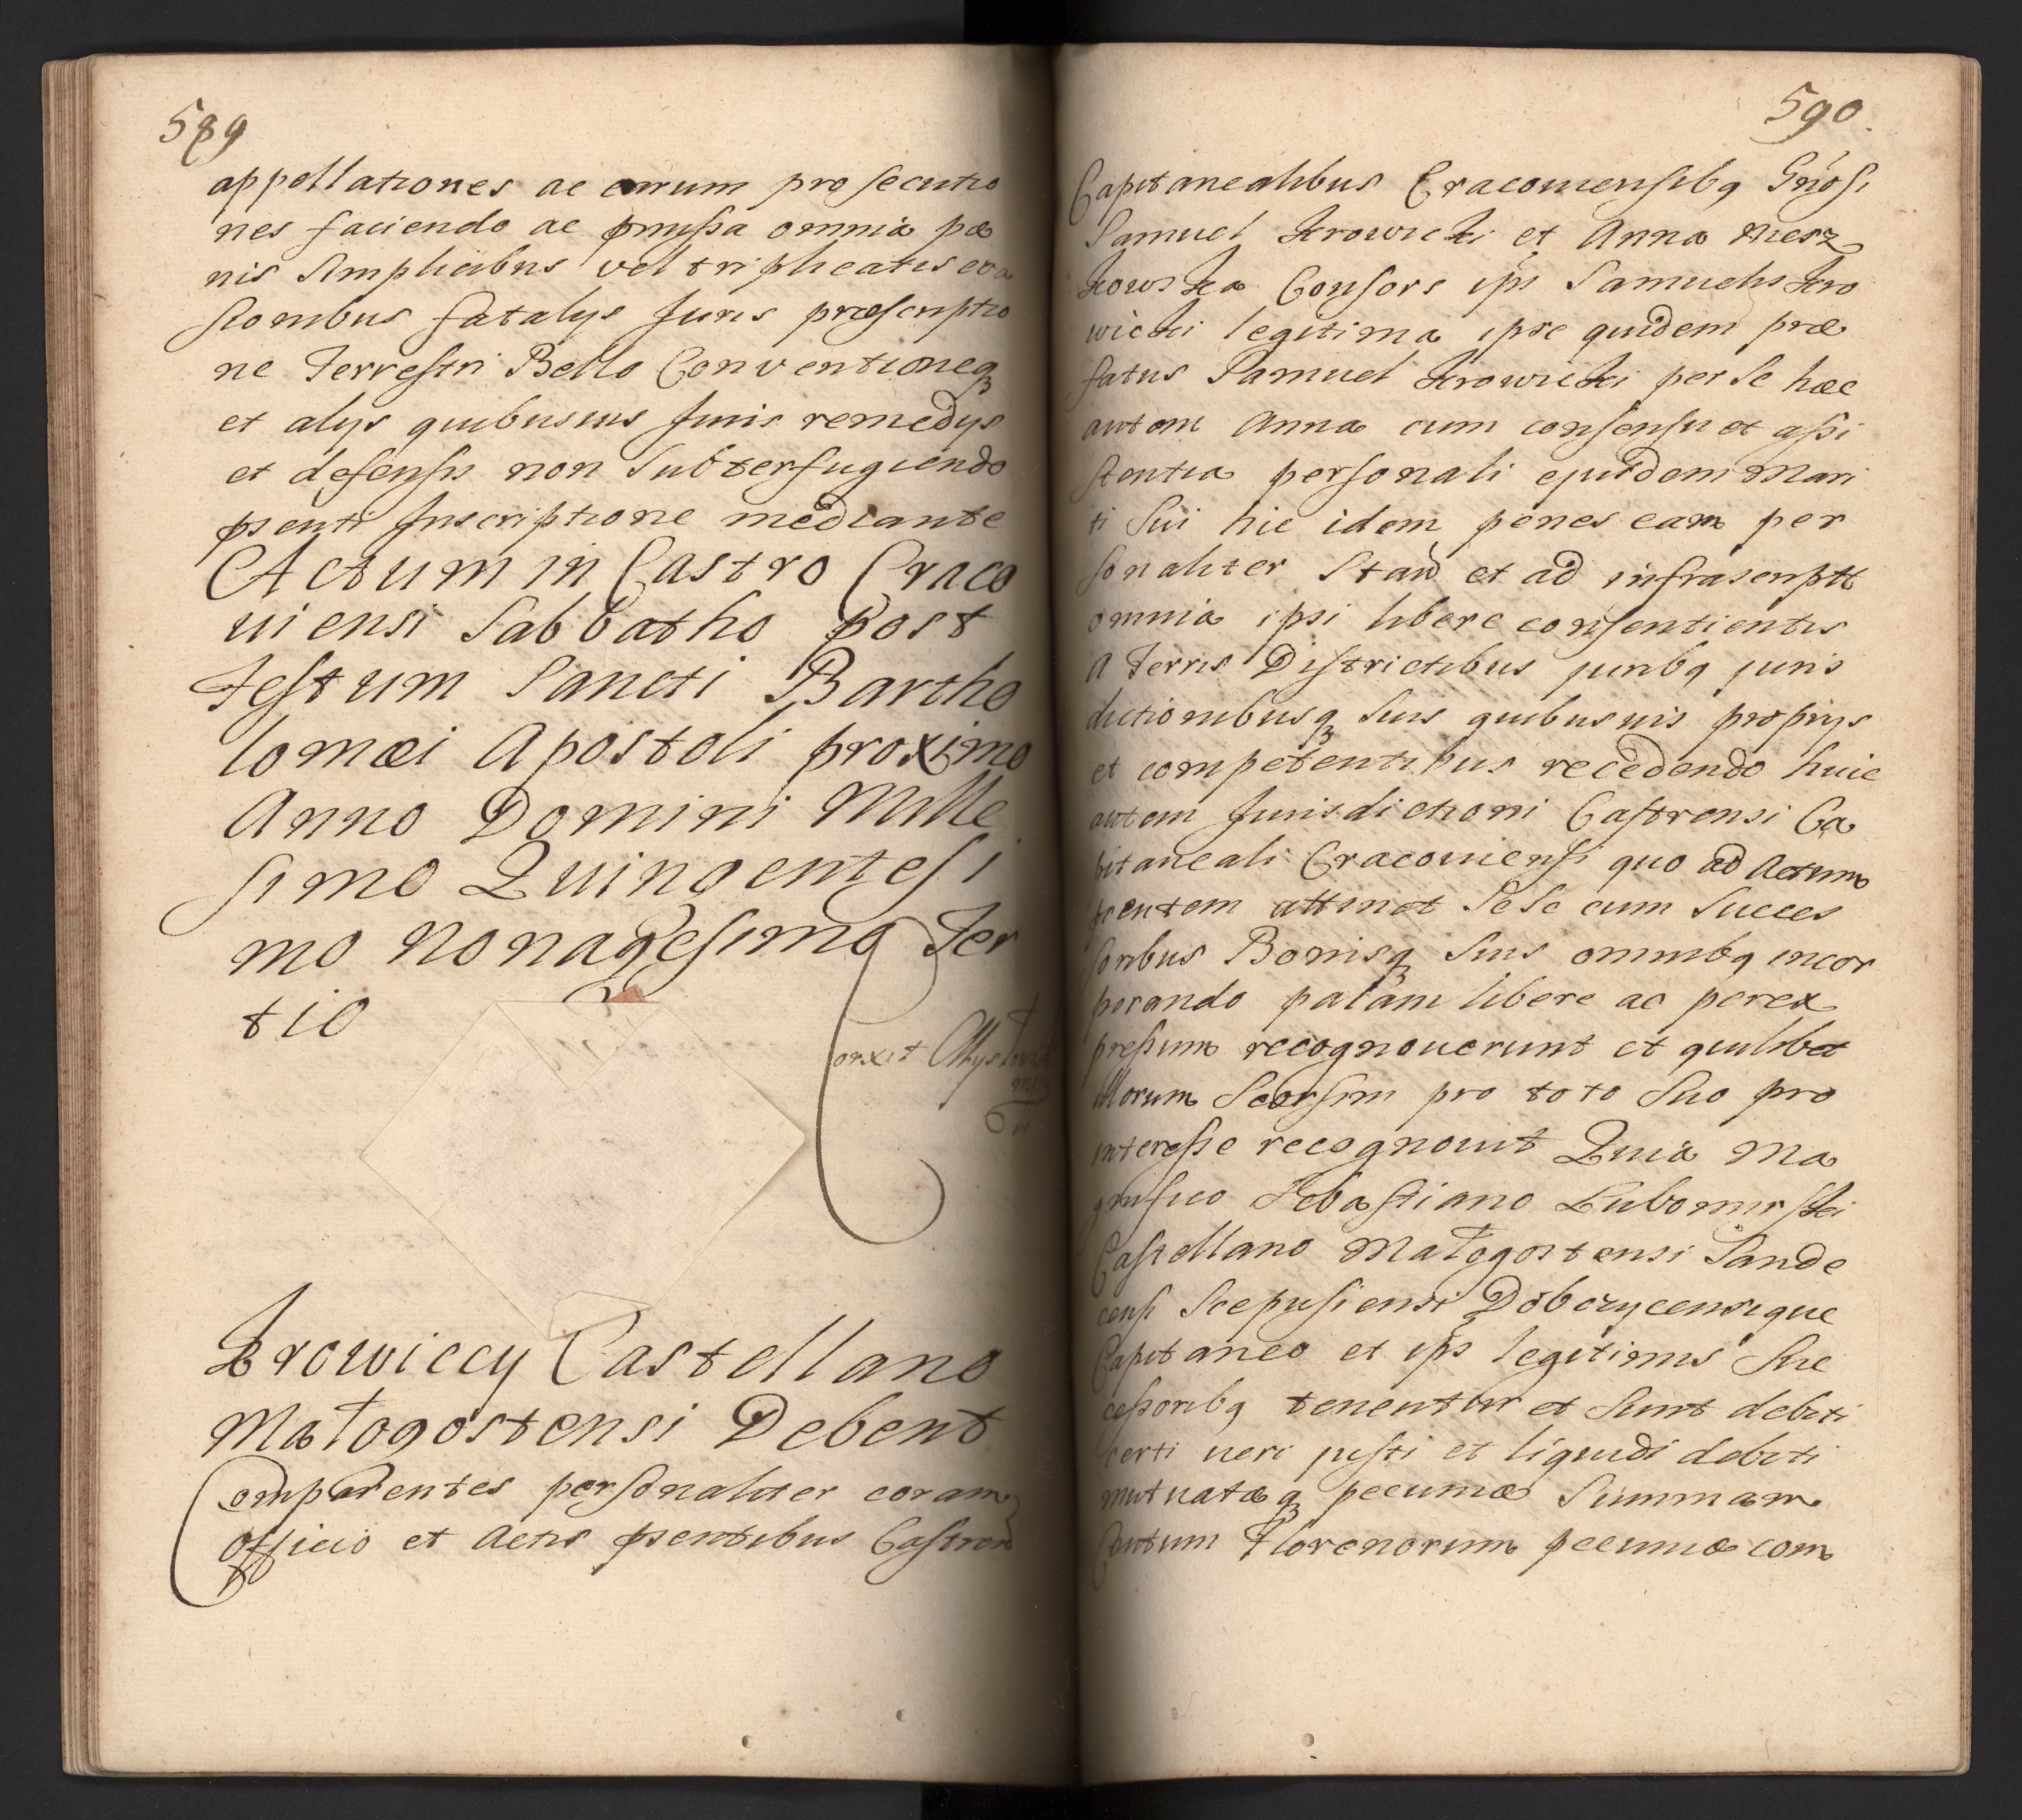 589
appellationes ac earum prosecutio
nes faciendo ac pmissa omnia pœ
nis simplicibus vel triplicatis eva
sionibus fatalys Juris præscriptio
ne Terrestri Bello Conventioneq3
et alys quibusvis Juris remedys
et defensis non Subterfugiendo
psenti Inscriptione mediante
Actum in Castro Craco
uiensi Sabbatho post
Festum Sancti Bartho
lomæi Apostoli proximo
Anno Domini Mille
simo Quingentesi
mo nonagesimo Ter
tio
Krowiccy Castellano
Małogostensi Debent
Comparentes personaliter coram
Officio et Actis psentibus Castren
590.
Capitanealibus Cracouiensibq Gnosi
Samuel Krowicki et Anna Miesz
kowska Consors ipi Samuelis Kro
wicki legitima ipse quidem præ
fatus Samuel Krowicki per Se hæc
autem Anna cum consensu et assi
stentia personali ejusdem Mari
ti Sui hic idem penes eam per
sonaliter Stan et ad infrascriptt
omnia ipsi libere consentientis
A Terris Districtibus juribq juris
dictionibusq3 Suis quibusuis proprys
et competentibus recedendo huic
autem Jurisdictioni Castrensi Ca
pitaneali Cracouiensi quo ad Actum
psentem attinet Sese cum Succes
soribus Bonisq3 Suis omnibq incor
porando palam libere ac perex
pressum recognouerunt et quilibet
illorum Seorsim pro toto Suo pro
interesse recognouit Quia Ma
gnifico Sebastiano Lubomirski
Castellano Małogostensi Sande
censi Scepusiensi Dobczycensique
Capitaneo et ips legitimis Suc
cessoribq tenentur et Sunt debiti
certi ueri justi et liquidi debiti
mutuatæq3 pecuniæ Summam
Centum Florenorum pecuniæ com